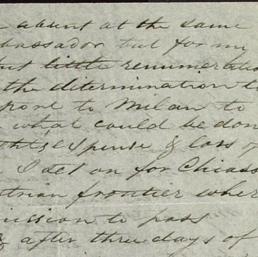 absent at the same
bassador but for my
but little renumeratio
the determination to
pone to Milan to
what could be don
the Expense & loss of
I set on for Chiass
trian frontier wher
mission to pass
& after three days of